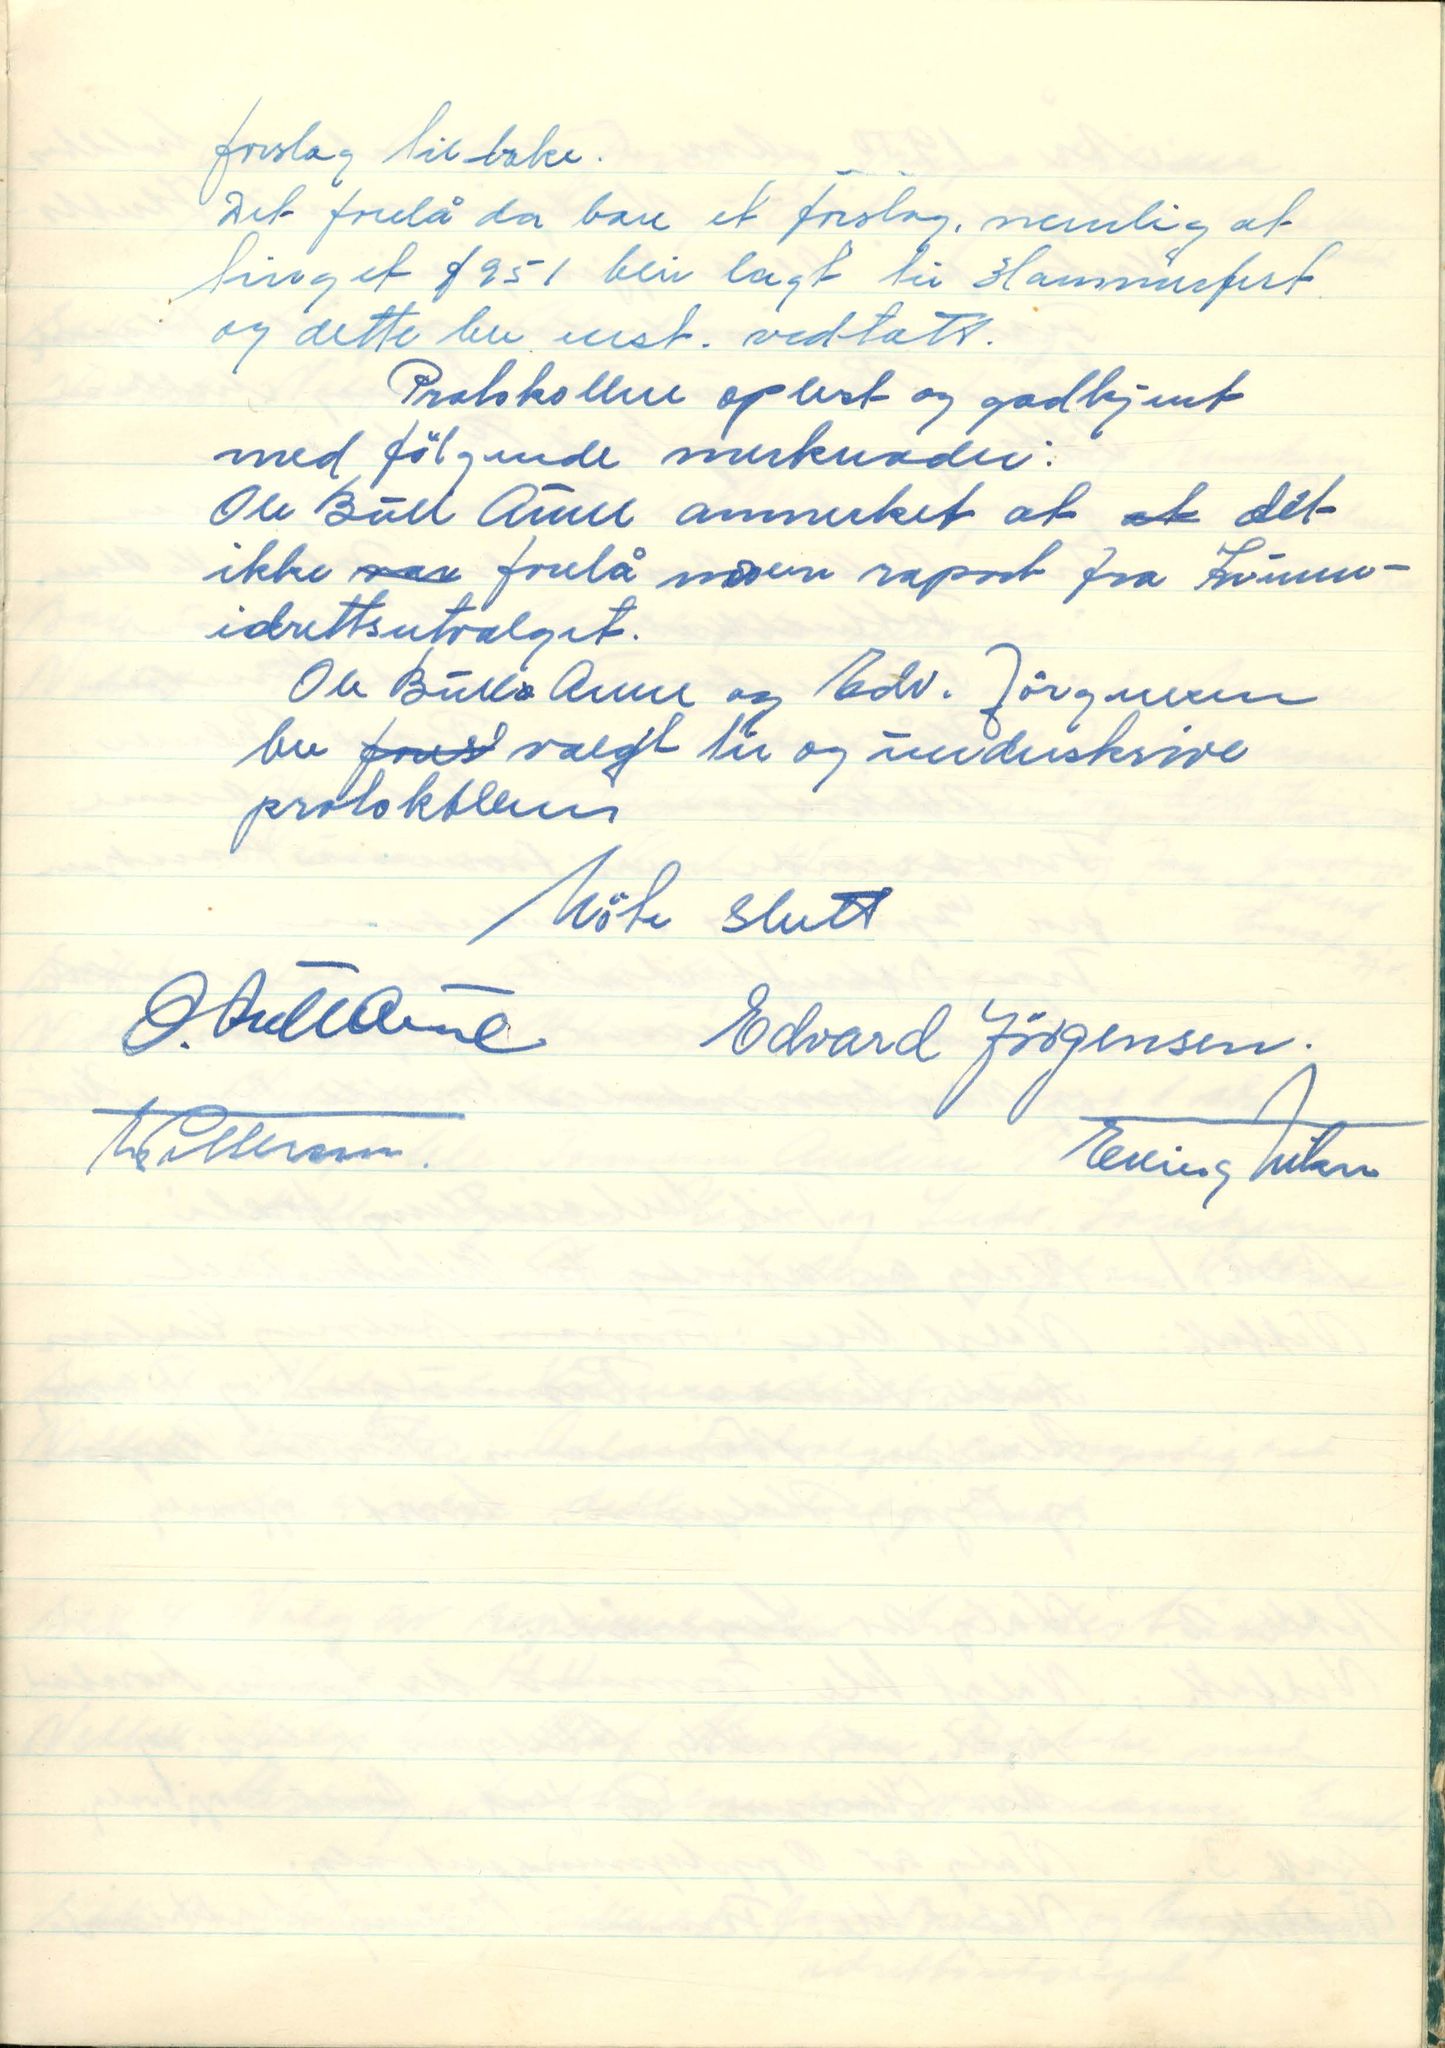 forslag tilbake.
Det forelå da bare et forslag, nemlig at
tinget 1951 blir lagt til Hammerfest
og dette ble enst. vedtatt.
Protokollen oplest og godkjent
med følgende merknader:
Ole Bull Aune anmerket at at det
ikke var forelå noen raport fra kvinne-
idrettsutvalget.
Ole Bull Aune og Edv. Jörgensen
ble valgt til og underskrive
protokollen
Möte slutt
O. Bull Aune
Edvard Jörgensen.
Pettersen.
Erling